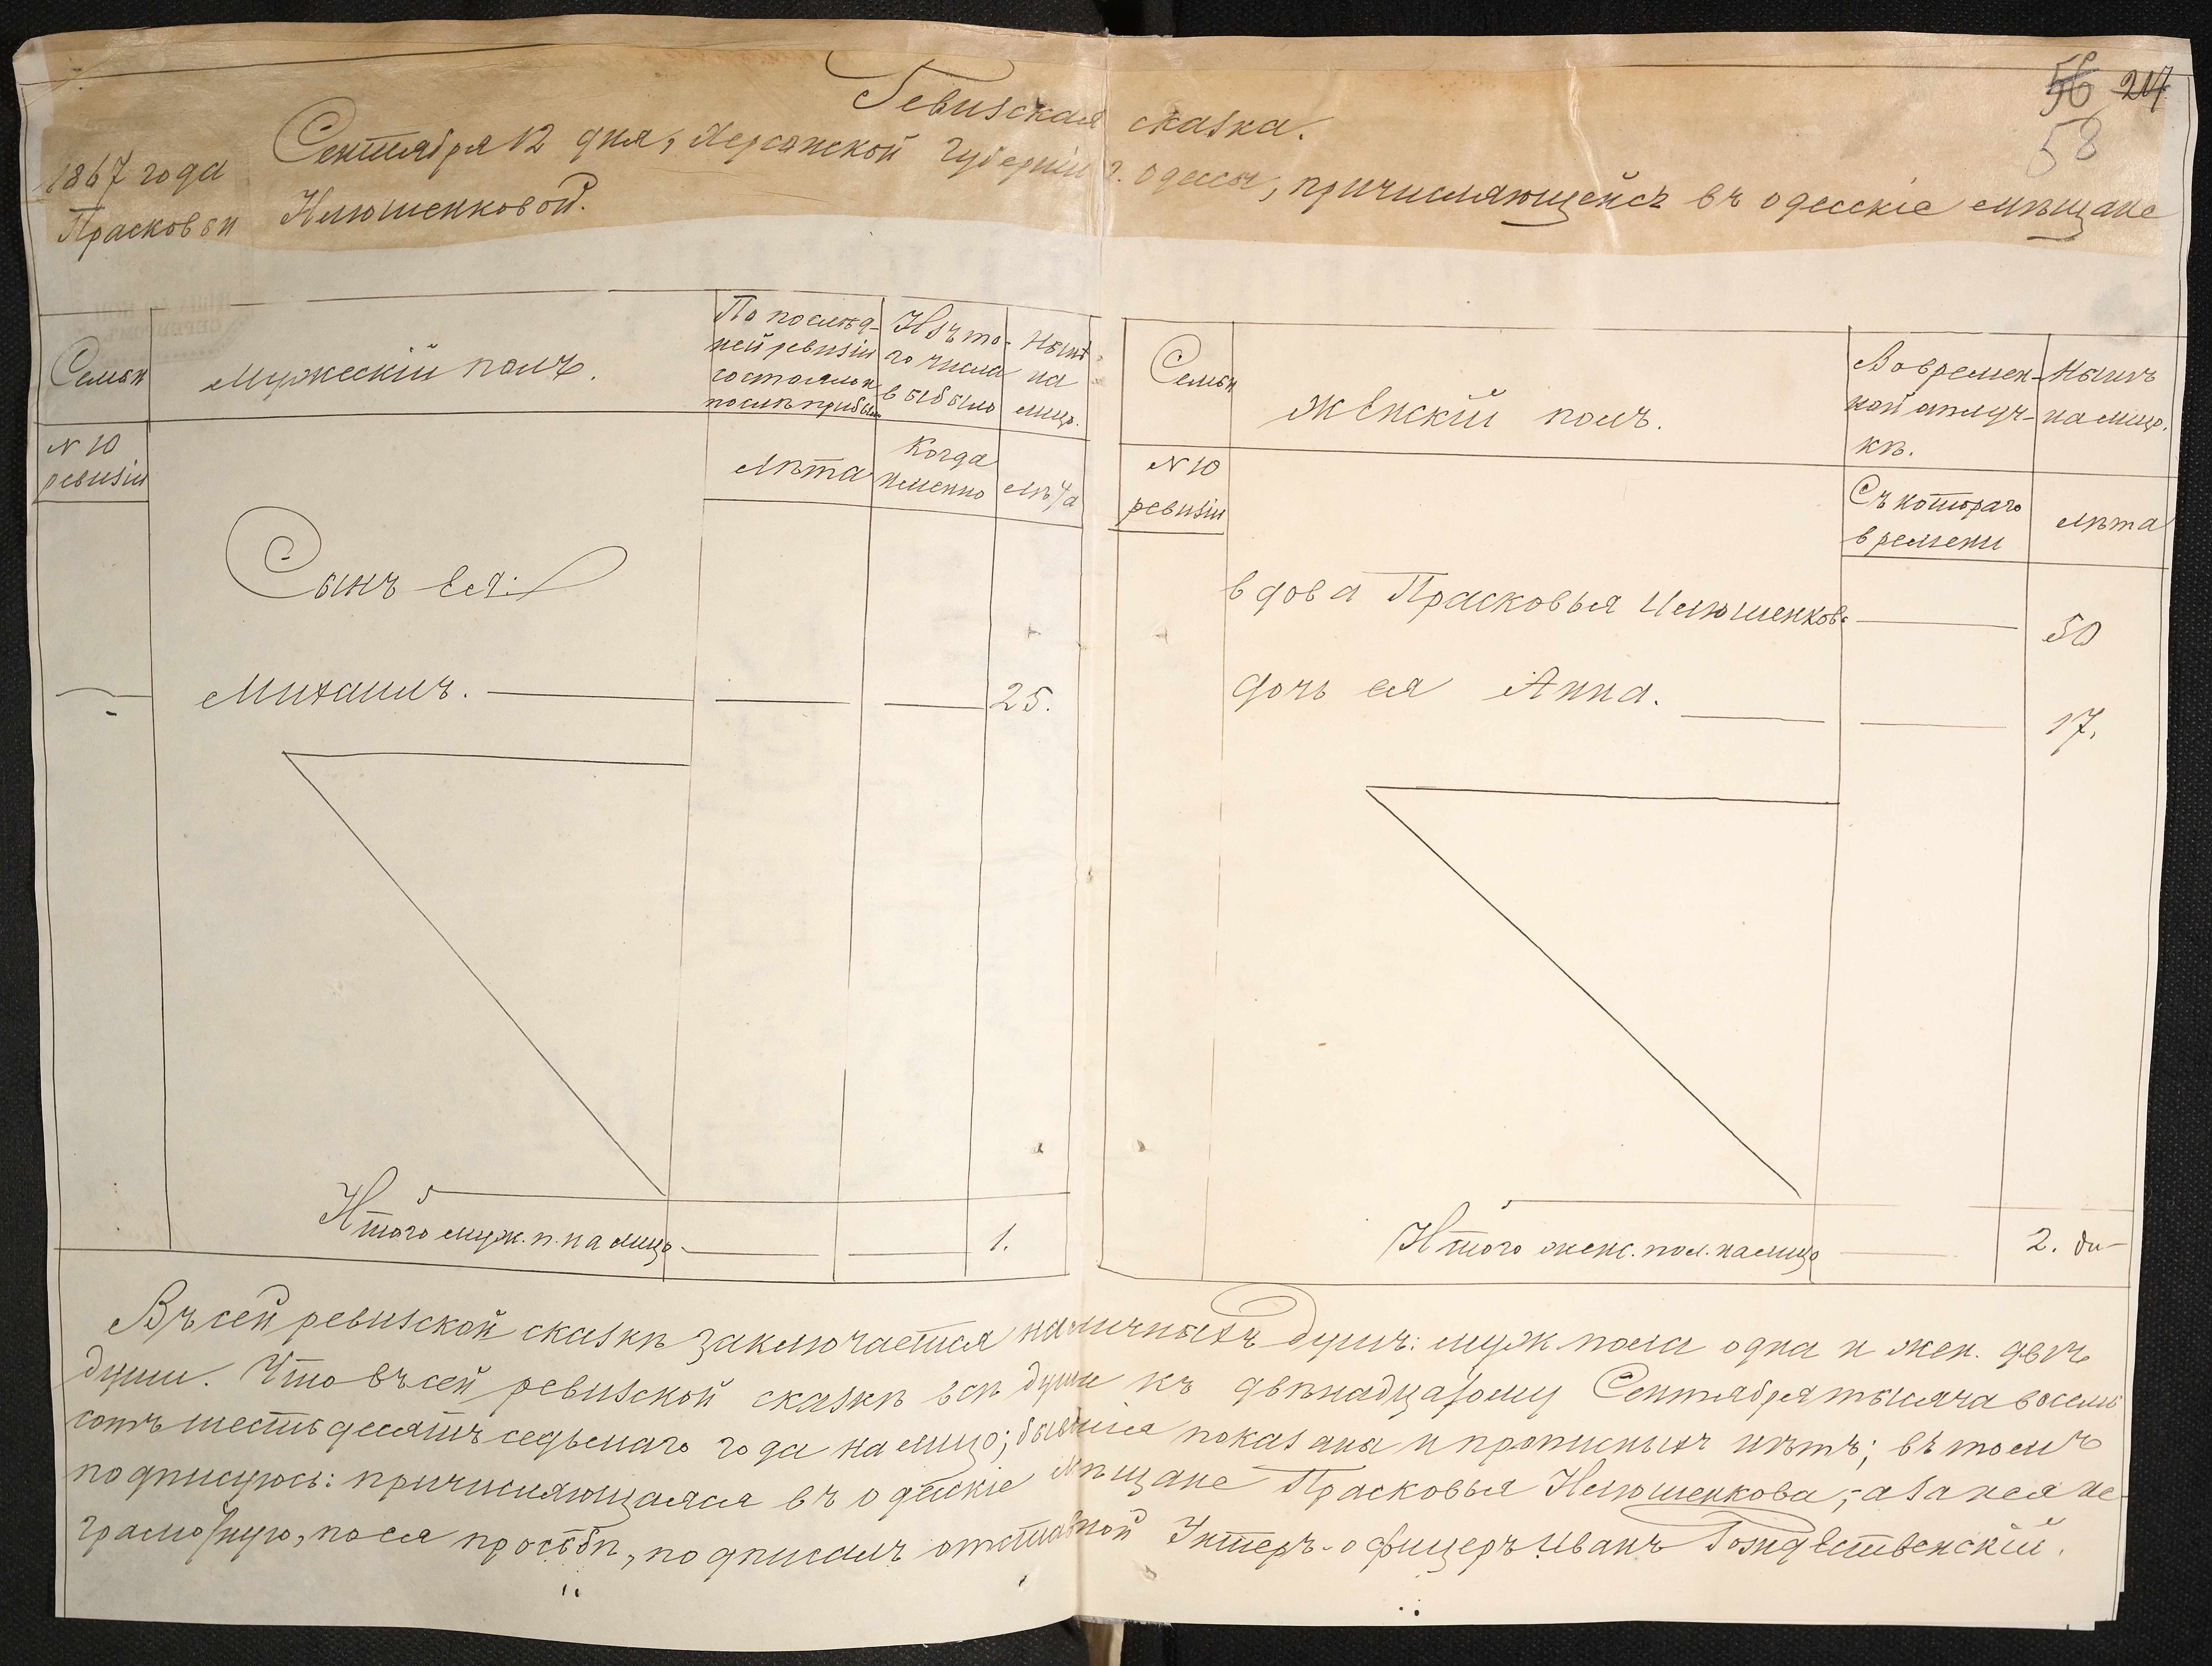 56 217
58
Ревизская сказка.
1867 года Сентября 12 дня, Херсонской губерніи г. Одессы, причисляющейсѧ въ одесскіе мѣщане
Прасковьи Илюшенковой.
Семьи
Мужескій полъ.
По послѣд-
ней ревизіи
состояло и
послѣ прибыло
Изъ то-
го числа
выбыло
Нынѣ
на
лицо.
№ 10
ревизіи
лѣта
Когда
именно
лѣта
Сынъ ея:
Михаилъ. 25.
Итого муж. п. на лицо 1.
Семьи
Женскій полъ.
Во времен-
ной отлуч-
кѣ.
Нынѣ
на лицо.
№ 10
ревизіи
Съ котораго
времени
лѣта
вдова Прасковья Илюшенкова 50
дочь ея Анна. 17.
Итого женс. пол. на лицо 2. ди
Въ сей ревизской сказкѣ заключается наличныхъ душъ: муж пола одна и жен. двѣ
души. Что въ сей ревизской сказкѣ всѣ души къ двѣнадцатому Сентября тысяча восемь
сотъ шестьдесятъ седьмаго года на лицо; бывшія показана и прописныхъ нѣтъ; въ томъ
подписуюсь: причисляющаяся въ одескіе мѣщане Прасковья Илюшенкова, а за нея не
грамотную, по ея просьбѣ, подписалъ отставной Унтеръ-офицеръ Иванъ Рождественскій.